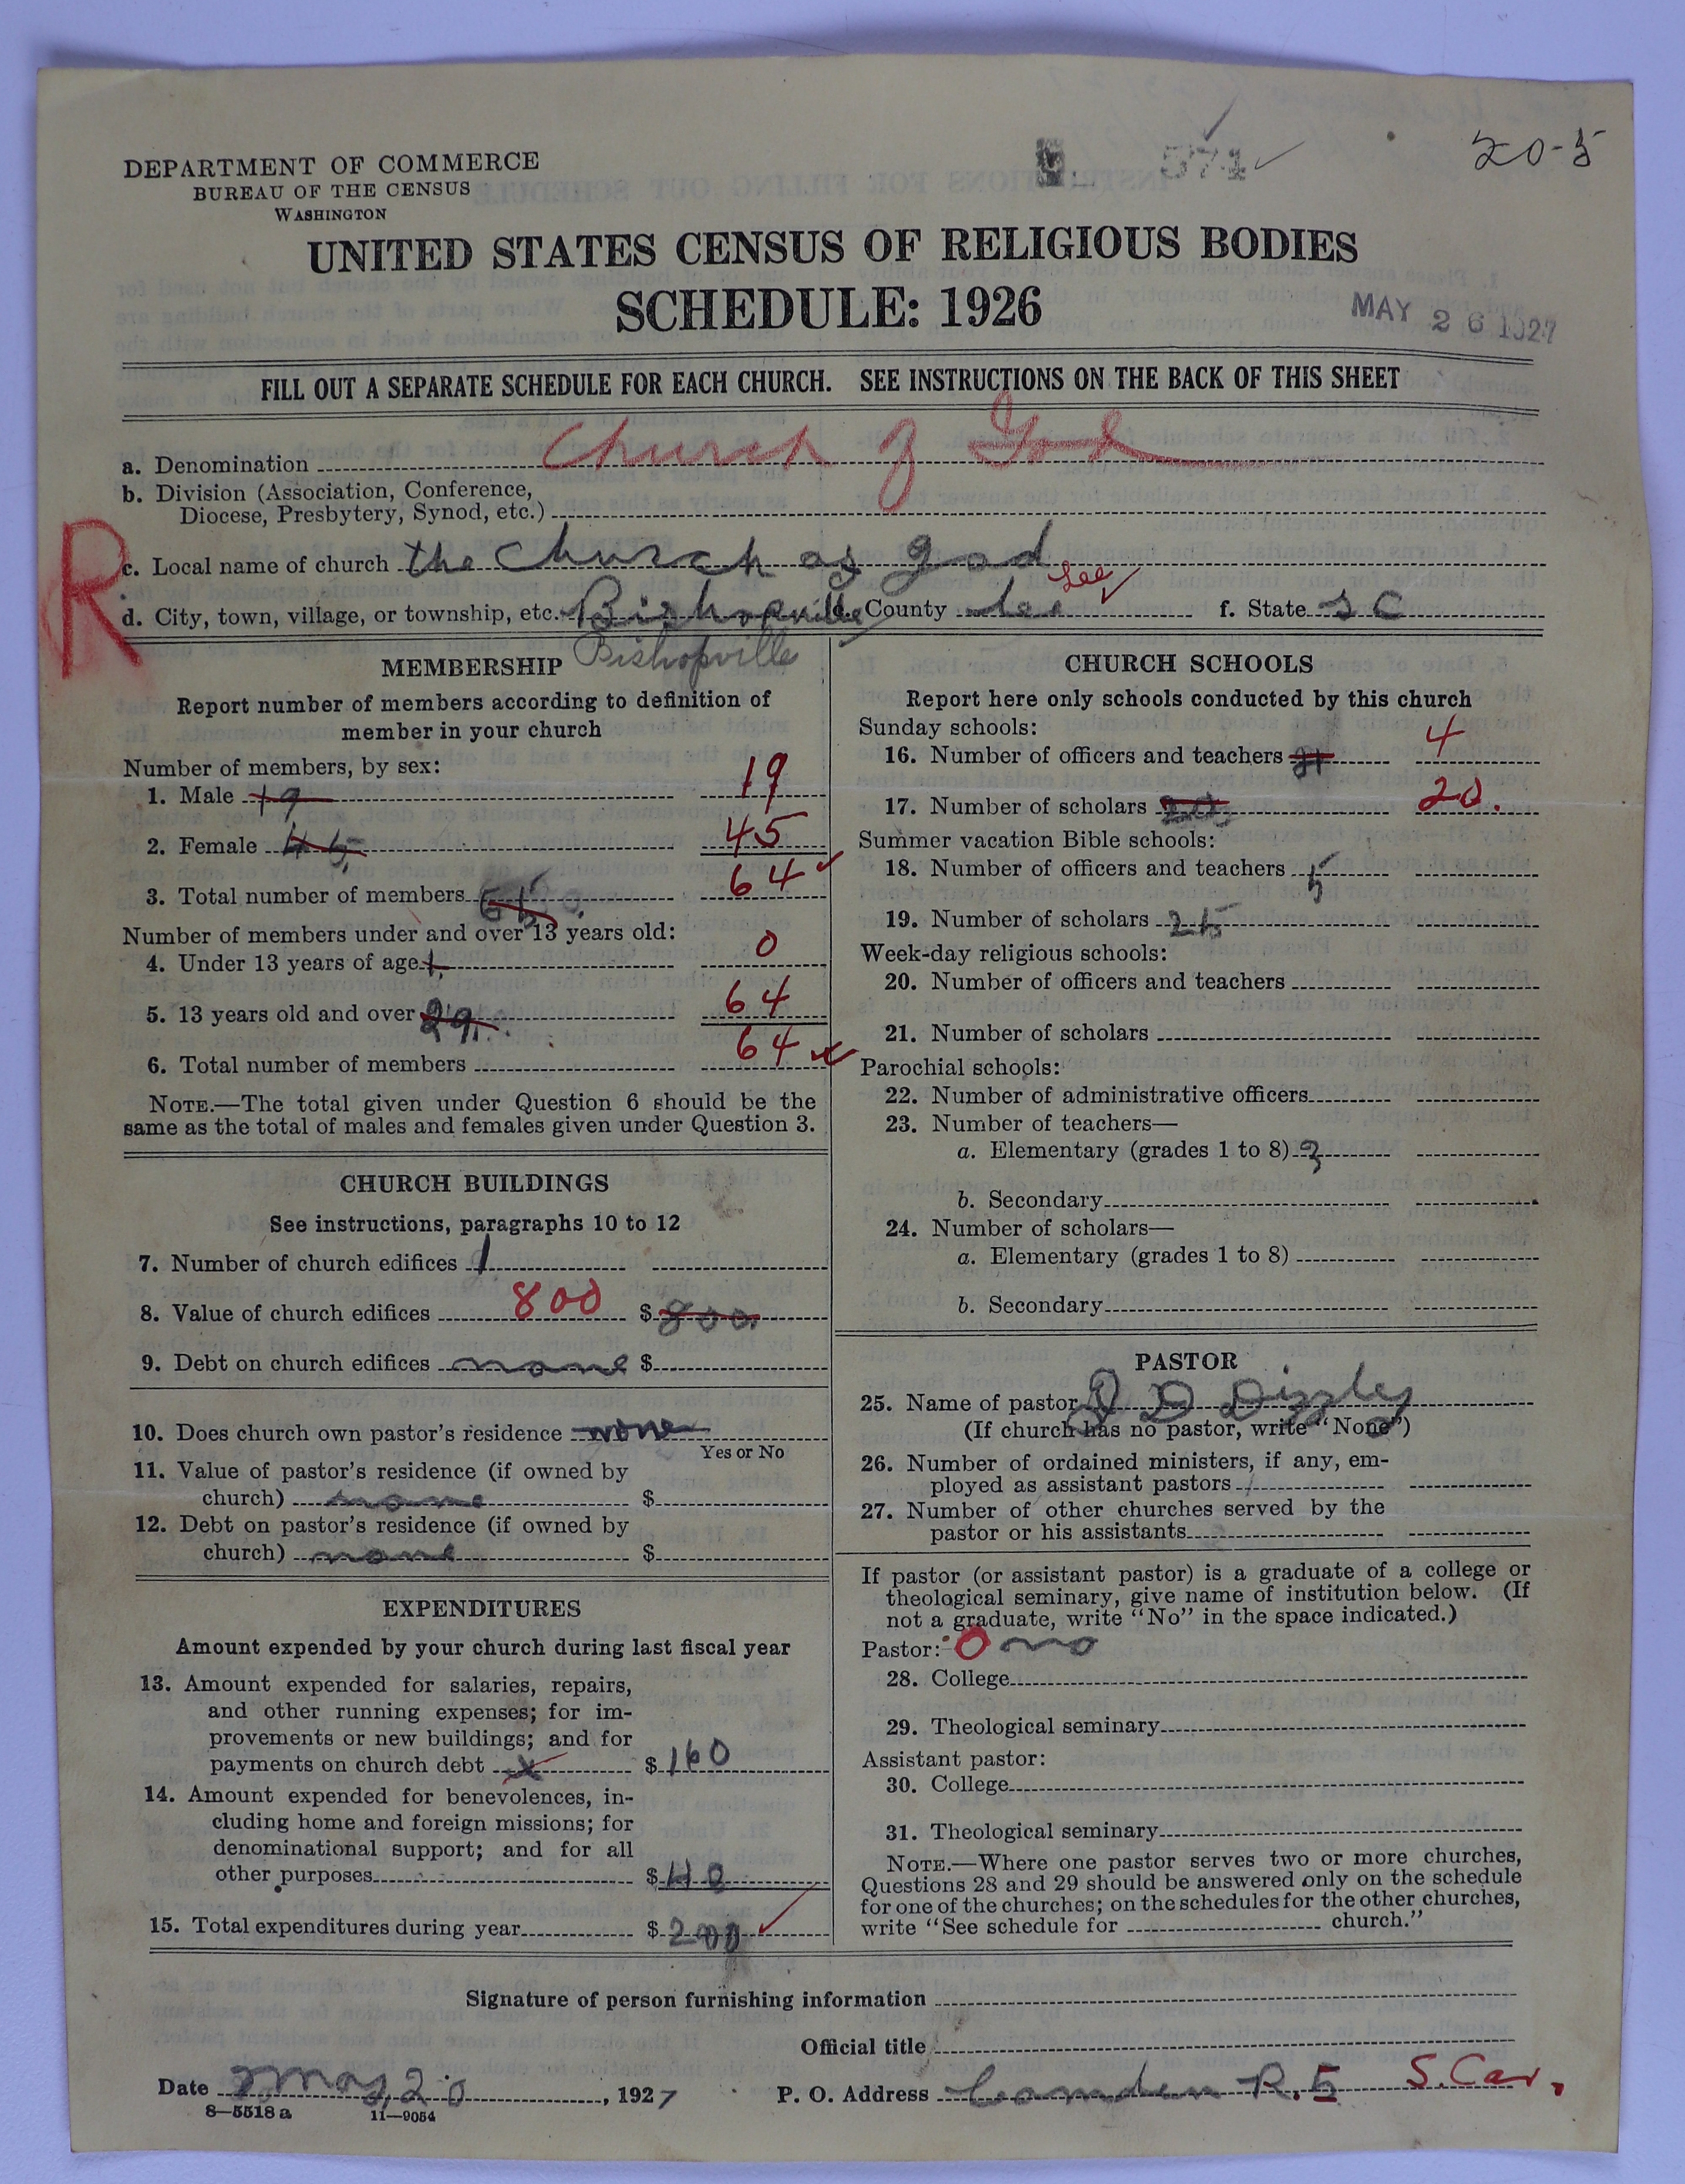 20-5
574
DEPARTMENT OF COMMERCE
BUREAU OF THE CENSUS
WASHINGTON
UNITED STATES CENSUS OF RELIGIOUS BODIES
SCHEDULE: 1926
MAY 26 1927
FILL OUT A SEPARATE SCHEDULE FOR EACH CHURCH. SEE INSTRUCTIONS ON THE BACK OF THIS SHEET
a. Denomination Church of God
b. Division (Association, Conference,
Diocese, Presbytery, Synod, etc.)
R
c. Local name of church the Church as god
Lee
d. City, town, village, or township, etc. Bishopville e. County Lee f. State S C
Bishopville
MEMBERSHIP
Report number of members according to definition of
member in your church
Number of members, by sex:
1. Male 19 19
2. Female 45 45
3. Total number of members 64
Number of members under and over 13 years old:
4. Under 13 years of age 1 0
5. 13 years old and over 29 64
6. Total number of members 64
NOTE.—The total given under Question 6 should be the
same as the total of males and females given under Question 3.
CHURCH BUILDINGS
See instructions, paragraphs 10 to 12
7. Number of church edifices 1
8. Value of church edifices 800 $ 800
9. Debt on church edifices none $
10. Does church own pastor's residence none
Yes or No
11. Value of pastor's residence (if owned by
church) none $
12. Debt on pastor's residence (if owned by
church) none $
EXPENDITURES
Amount expended by your church during last fiscal year
13. Amount expended for salaries, repairs,
and other running expenses; for im-
provements or new buildings; and for
payments on church debt x $ 160
14. Amount expended for benevolences, in-
cluding home and foreign missions; for
denominational support; and for all
other purposes $ 40
15. Total expenditures during year $ 200
CHURCH SCHOOLS
Report here only schools conducted by this church
Sunday schools:
16. Number of officers and teachers 4
17. Number of scholars 20 20.
Summer vacation Bible schools:
18. Number of officers and teachers 5
19. Number of scholars 25
Week-day religious schools:
20. Number of officers and teachers
21. Number of scholars
Parochial schools:
22. Number of administrative officers
23. Number of teachers—
a. Elementary (grades 1 to 8) 3
b. Secondary
24. Number of scholars—
a. Elementary (grades 1 to 8)
b. Secondary
PASTOR
25. Name of pastor D Dizzley
(If church has no pastor, write "None")
26. Number of ordained ministers, if any, em-
ployed as assistant pastors
27. Number of other churches served by the
pastor or his assistants
If pastor (or assistant pastor) is a graduate of a college or
theological seminary, give name of institution below. (If
not a graduate, write "No" in the space indicated.)
Pastor: 0 no
28. College
29. Theological seminary
Assistant pastor:
30. College
31. Theological seminary
NOTE.—Where one pastor serves two or more churches,
Questions 28 and 29 should be answered only on the schedule
for one of the churches; on the schedules for the other churches,
write "See schedule for church."
Signature of person furnishing information
Official title
Date May 20, 1927 P. O. Address Camden R. 5 S. Car.
8—5518 a 11—9054